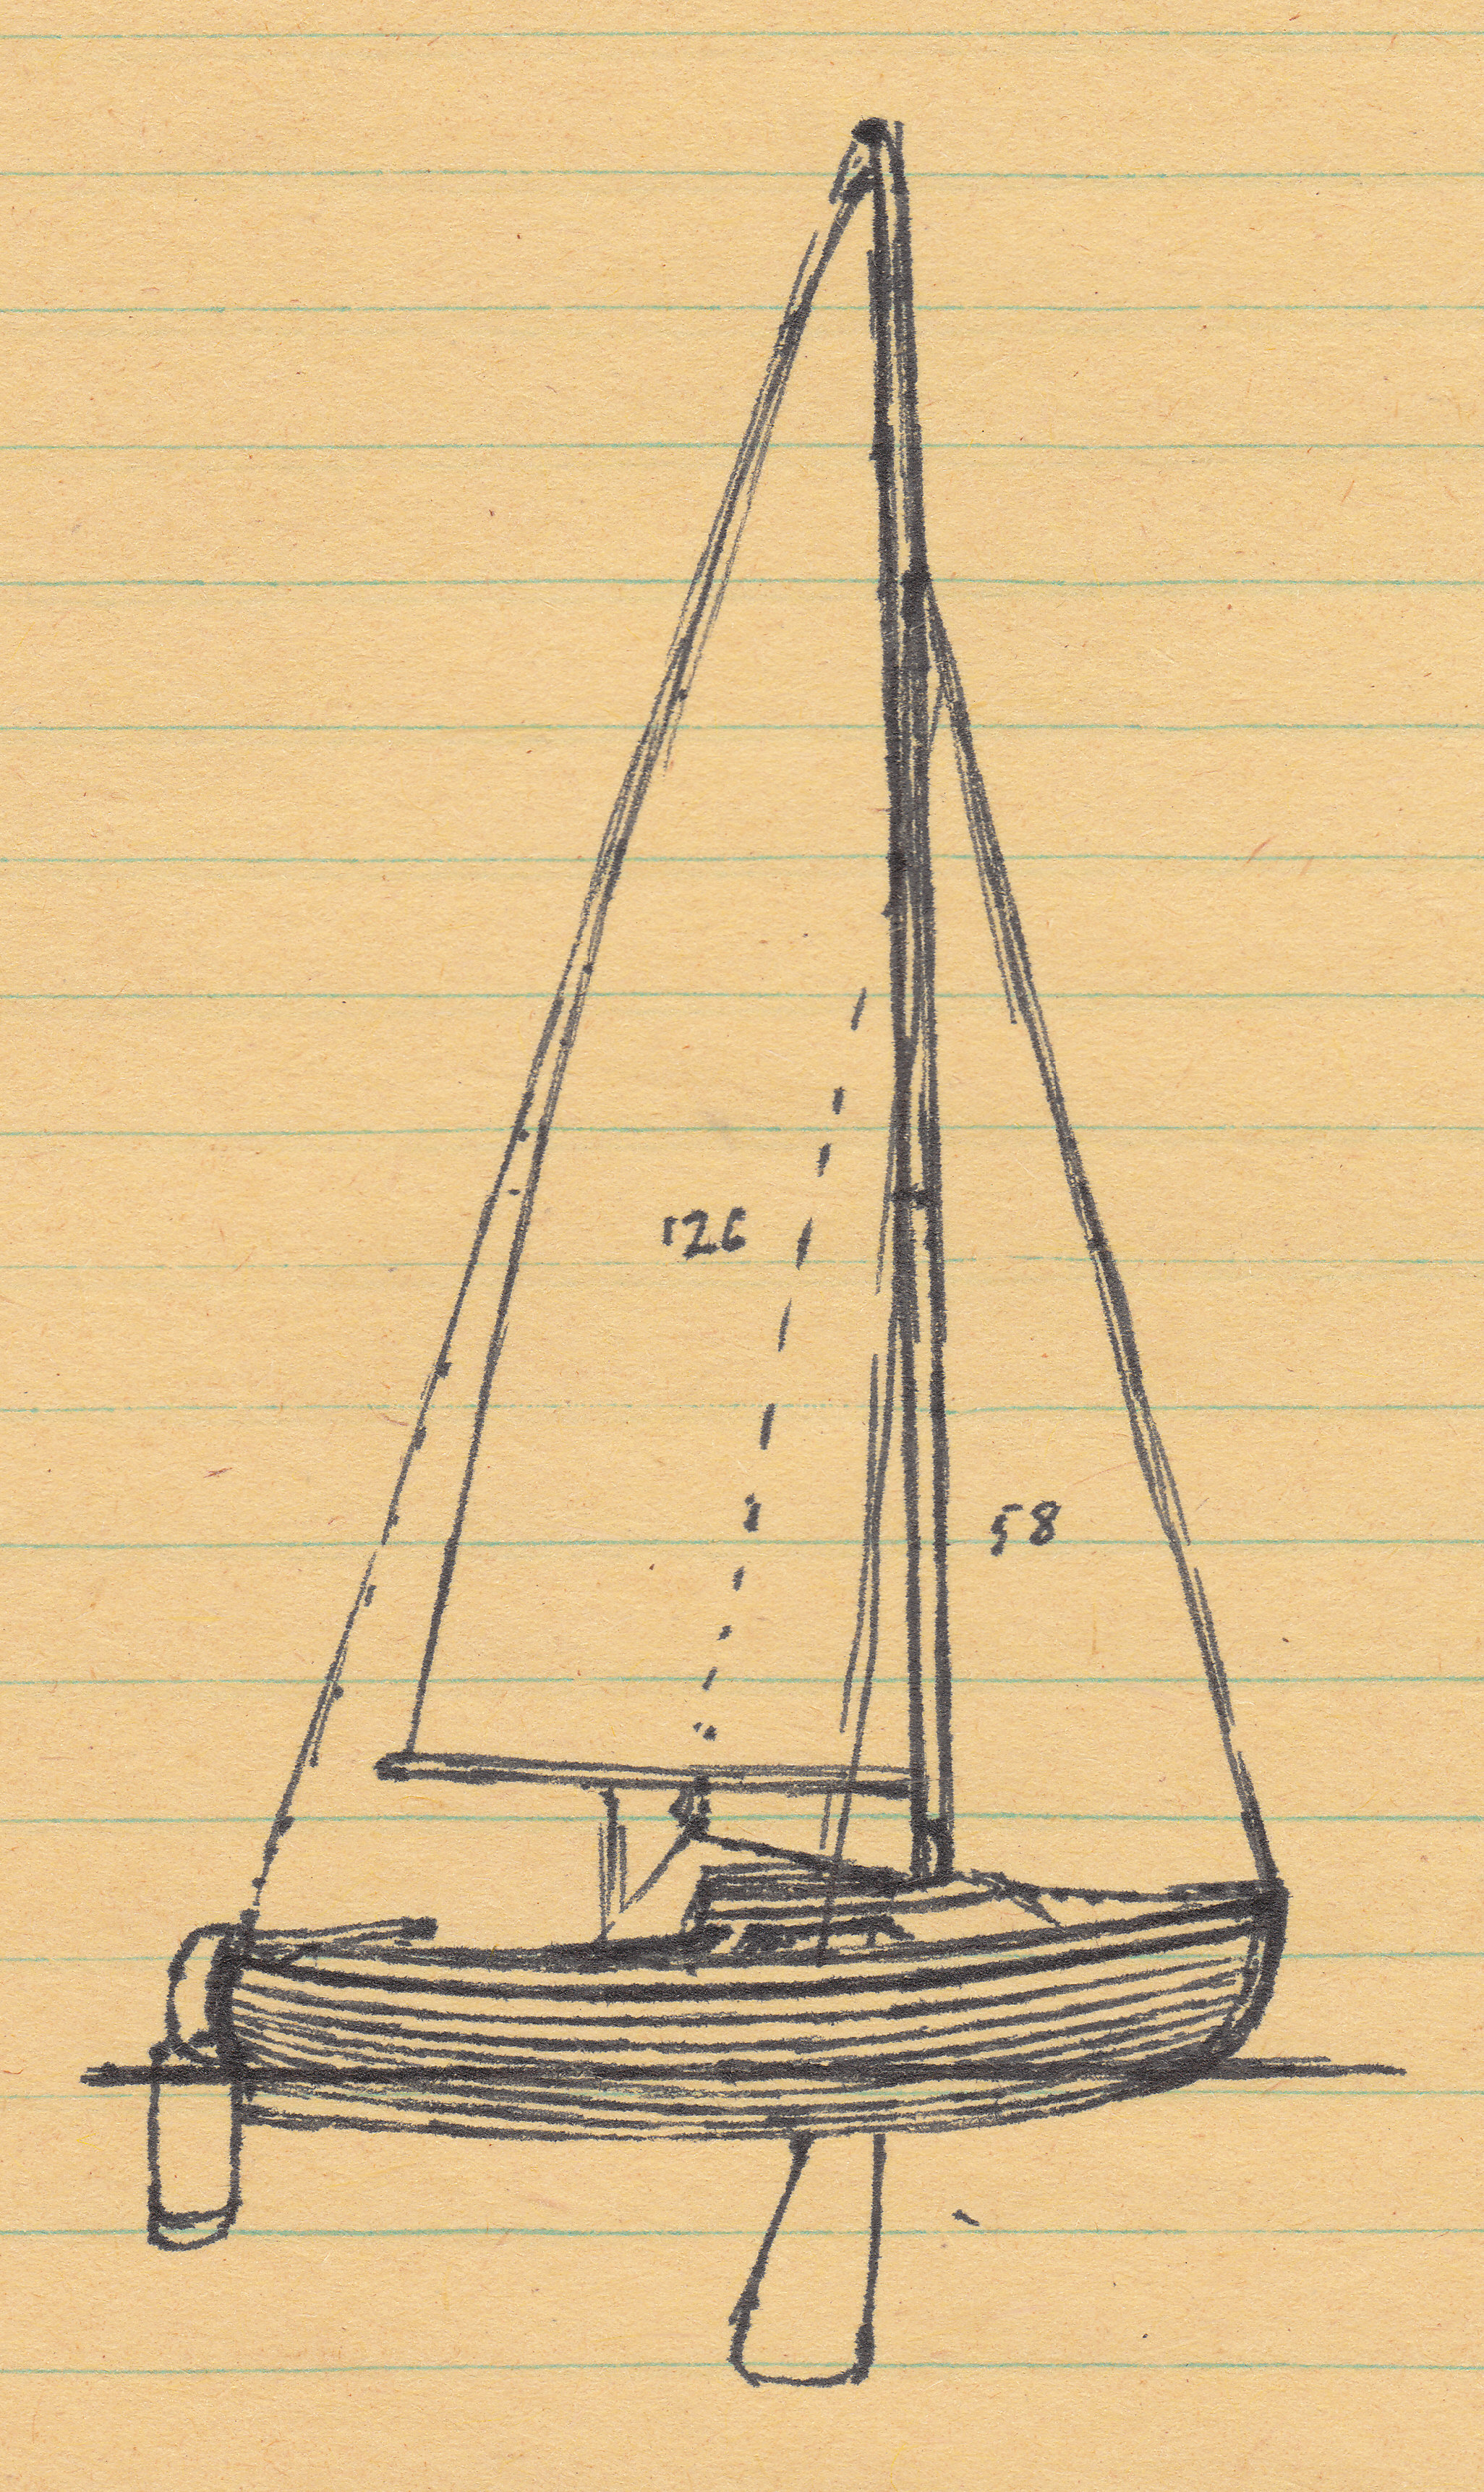 126
58